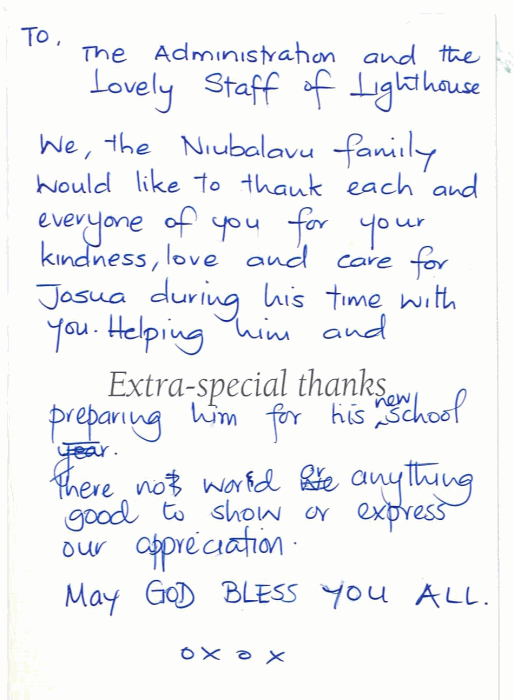 To,
The Administration and the
Lovely Staff of Lighthouse
We, the Niubalavu family
would like to thank each and
everyone of you for your
kindness, love and care for
Josua during his time with
you. Helping him and
Extra-special thanks
preparing him for his new school
year.
There not world or anything
good to show or express
our appreciation.
May GOD BLESS YOU ALL.
oxox